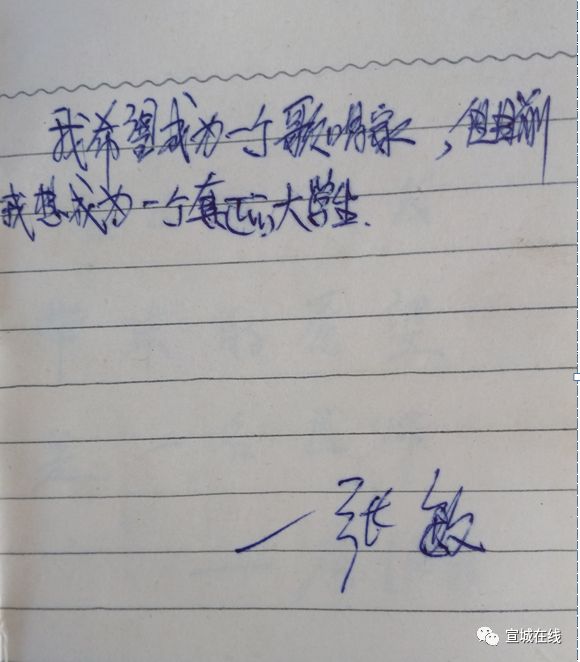 我希望成为一个歌唱家，但目前
我想成为一个真正的大学生.
一张敏
宣城在线